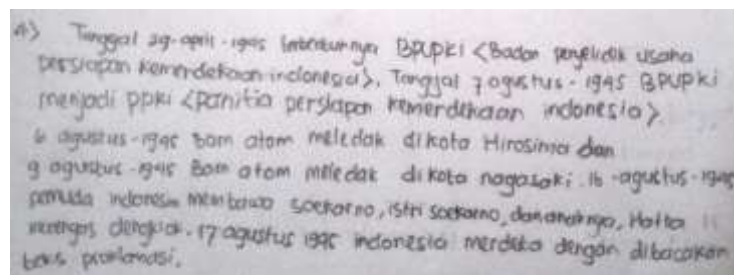 4) Tanggal 29-april-1945 terbentuknya BPUPKI <Badan penyelidik usaha
persiapan kemerdekaan indonesia>. Tanggal 7 agustus-1945 BPUPKI
menjadi ppki <panitia persiapan kemerdekaan indonesia>.
6 agustus-1945 bom atom meledak dikota Hirosima dan
9 agustus-1945 Bom atom meledak di kota nagasaki. 16-agustus-1945
pemuda indonesia membawa soekarno, istri soekarno, dan anaknya, Hatta
17 agustus 1945 indonesia merdeka dengan dibacakan
teks proklamasi.